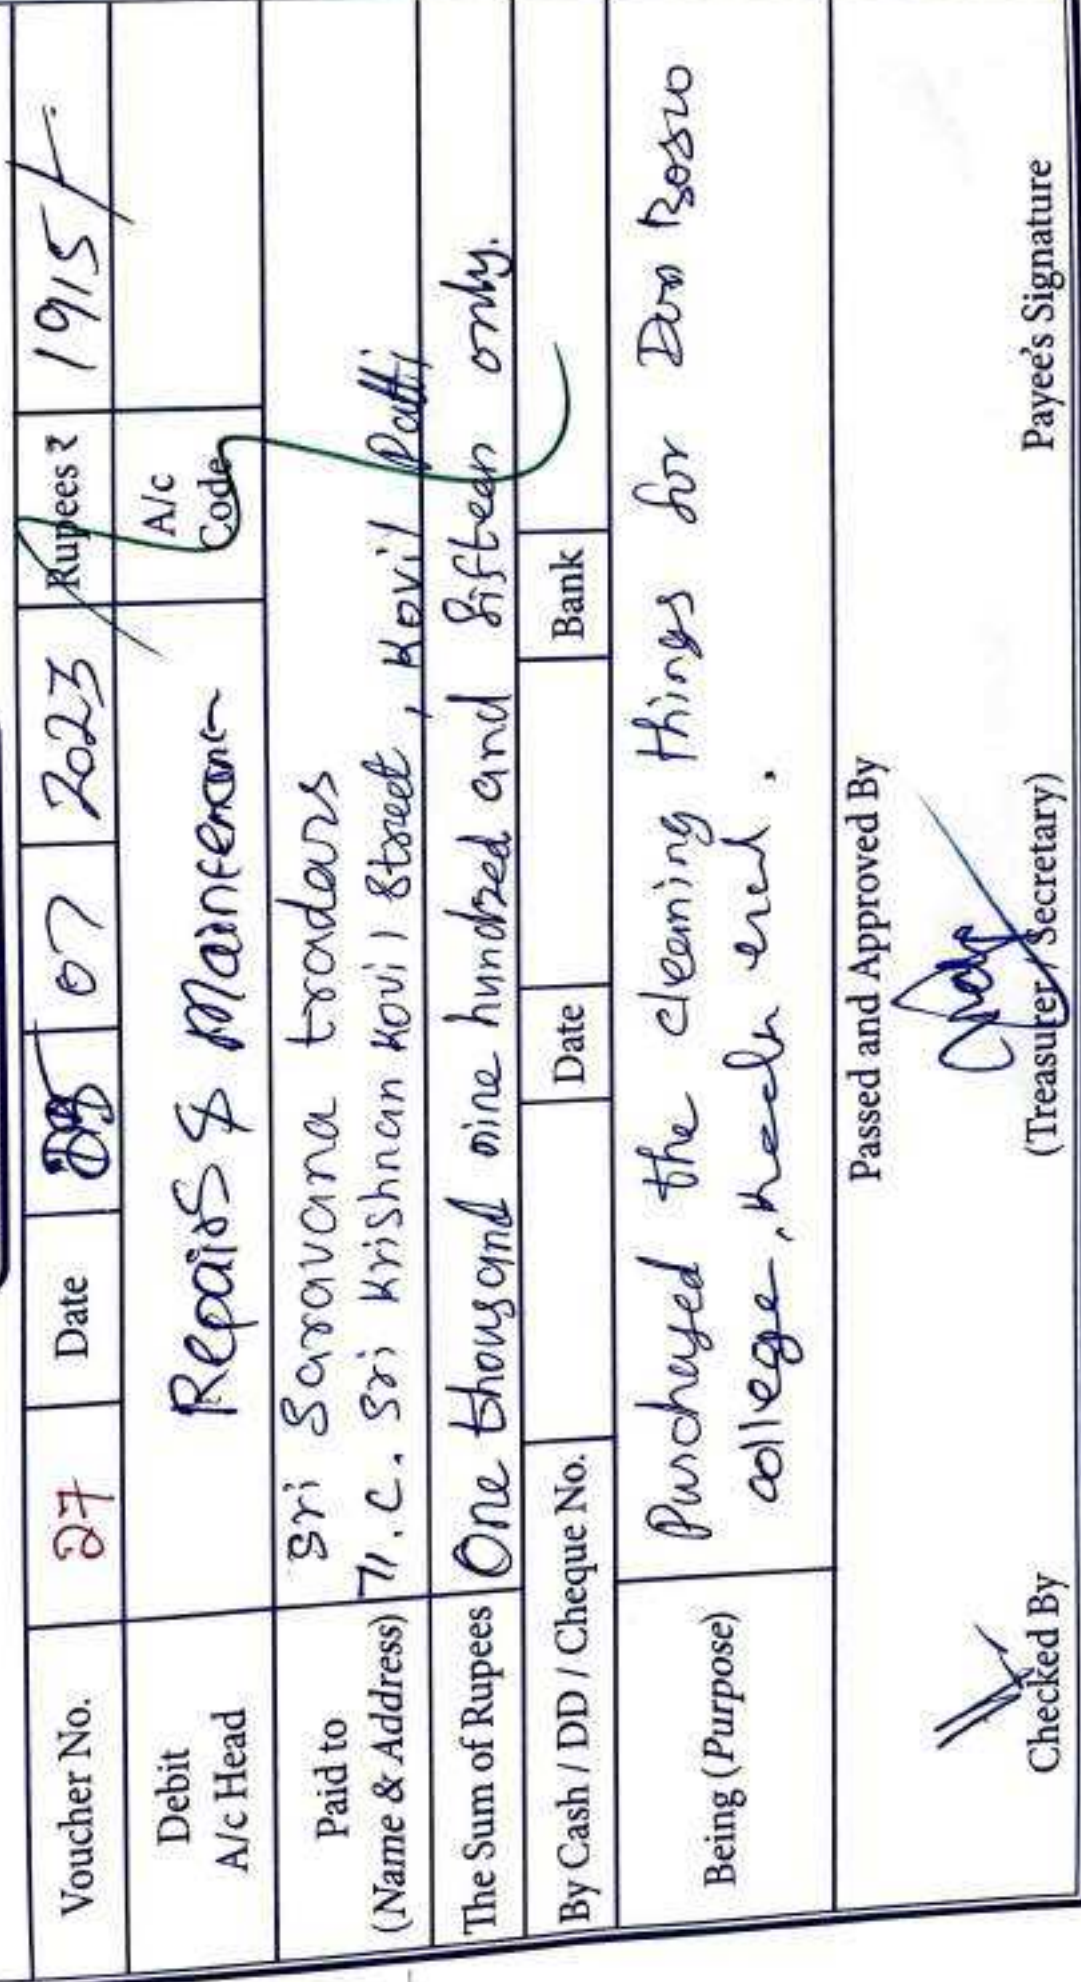 Voucher No. 27 Date 07 2023 Rupees ₹ 1915/-
Debit A/c Head Repairs & Maintenance A/c Code
Paid to Sri Saravana traders
(Name & Address) 71.C. Sri Krishnan Kovil Street, Kovil Patti
The Sum of Rupees One thousand nine hundred and fifteen only.
By Cash / DD / Cheque No. Date Bank
Being (Purpose) Purchased the cleaning things for Don Bosco
college,
Passed and Approved By
Checked By (Treasurer / Secretary) Payee's Signature